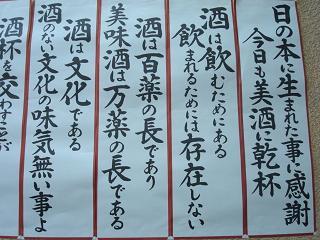 日の本に生まれた事に感謝
今日も美酒に乾杯
酒は飲むためにある
飲まれるためには存在しない
酒は百薬の長であり
美味酒は万薬の長である
酒は文化である
酒のない文化の味気無い事よ
酒杯を交わすことが